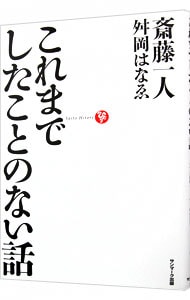 斎藤一人
舛岡はなゑ
これまで
したことのない話
サンマーク出版